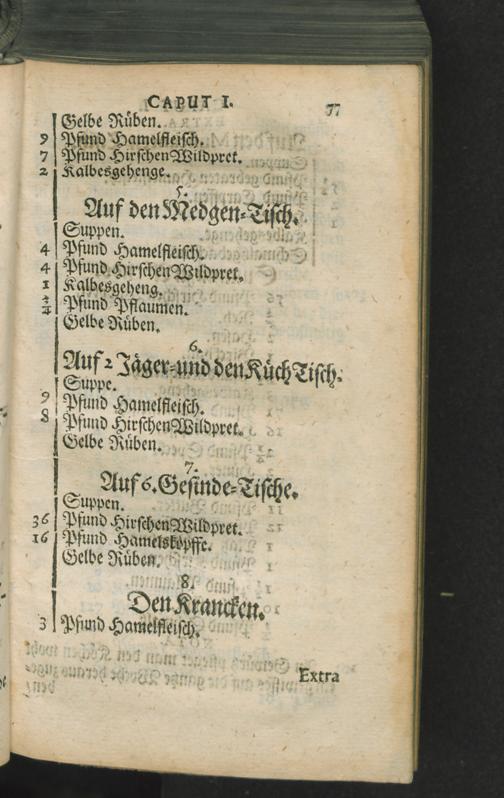 CAPUT I. 77
Gelbe Rüben.
9 Pfund Hamelfleisch.
7 Pfund Hirschen Wildpret.
2 Kalbesgehenge.
5.
Auf den Medgen-Tisch.
Suppen.
4 Pfund Hamelfleisch.
4 Pfund Hirschen Wildpret.
1 Kalbesgeheng.
Pfund Pflaumen.
Gelbe Rüben.
6.
Auf 2 Jäger- und den Küch Tisch.
Suppe.
9 Pfund Hamelfleisch.
8 Pfund Hirschen Wildpret.
Gelbe Rüben.
7.
Auf 6. Gesinde-Tische.
Suppen.
36 Pfund Hirschen Wildpret.
16 Pfund Hamelsköpffe.
Gelbe Rüben.
8.
Den Krancken.
3 Pfund Hamelfleisch.
Extra